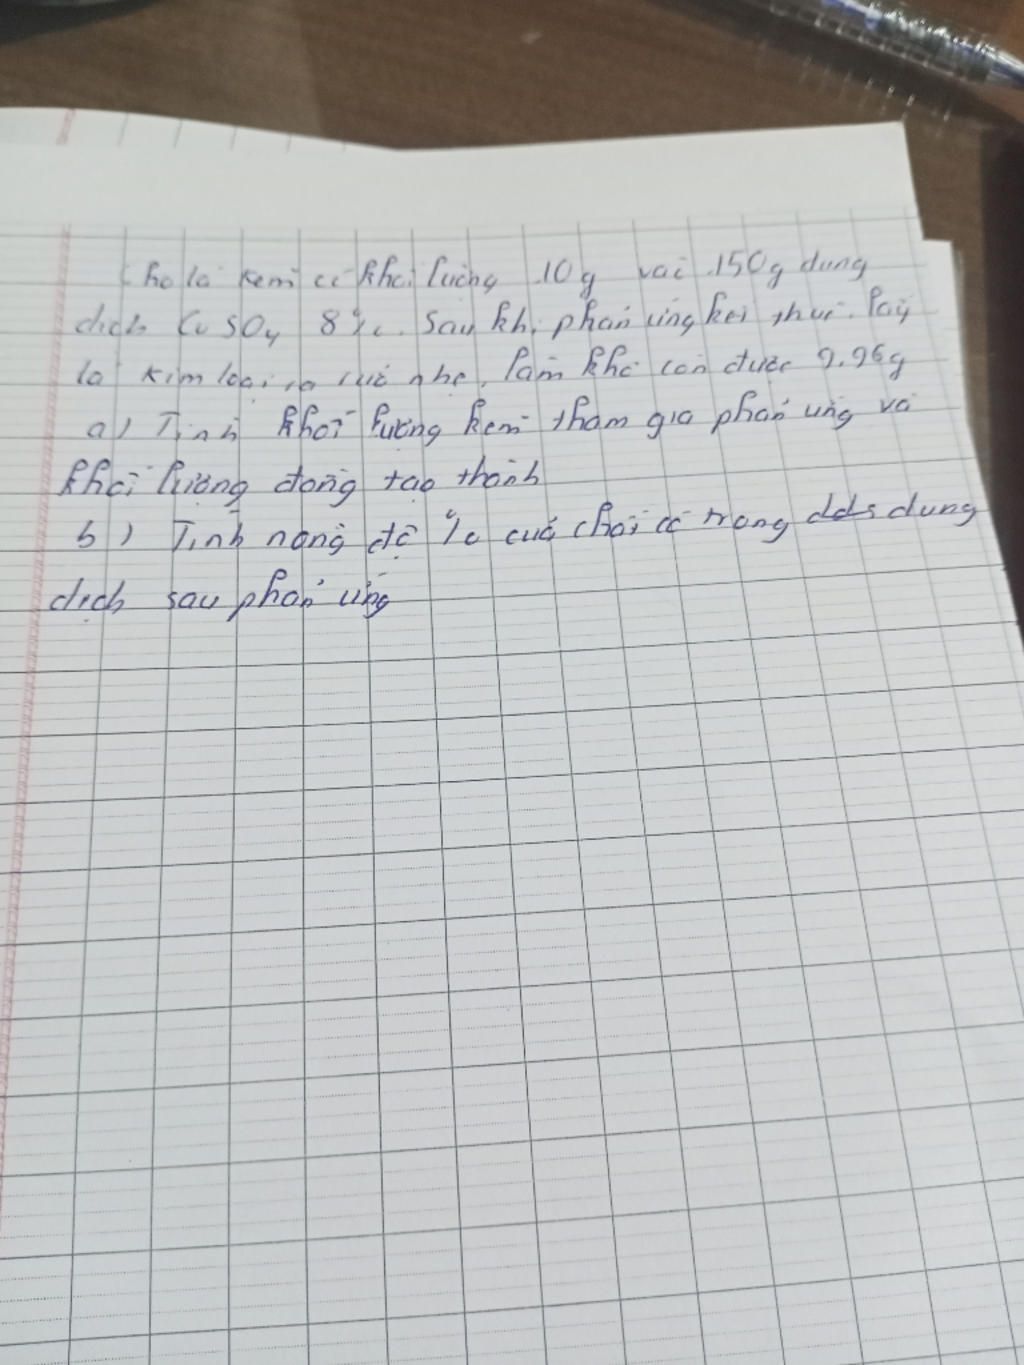 Cho lá kẽm có khối lượng 10g vài 150g dung
dịch CuSO4 8%. Sau khi phản ứng kết thúc. lấy
lá kim loại ra rửa nhẹ, làm khô cân được 9.96g
a) Tính khối lượng kẽm tham gia phản ứng và
khối lượng đồng tạo thành
b) Tính nồng độ % của chất có trong dds dung
dịch sau phản ứng